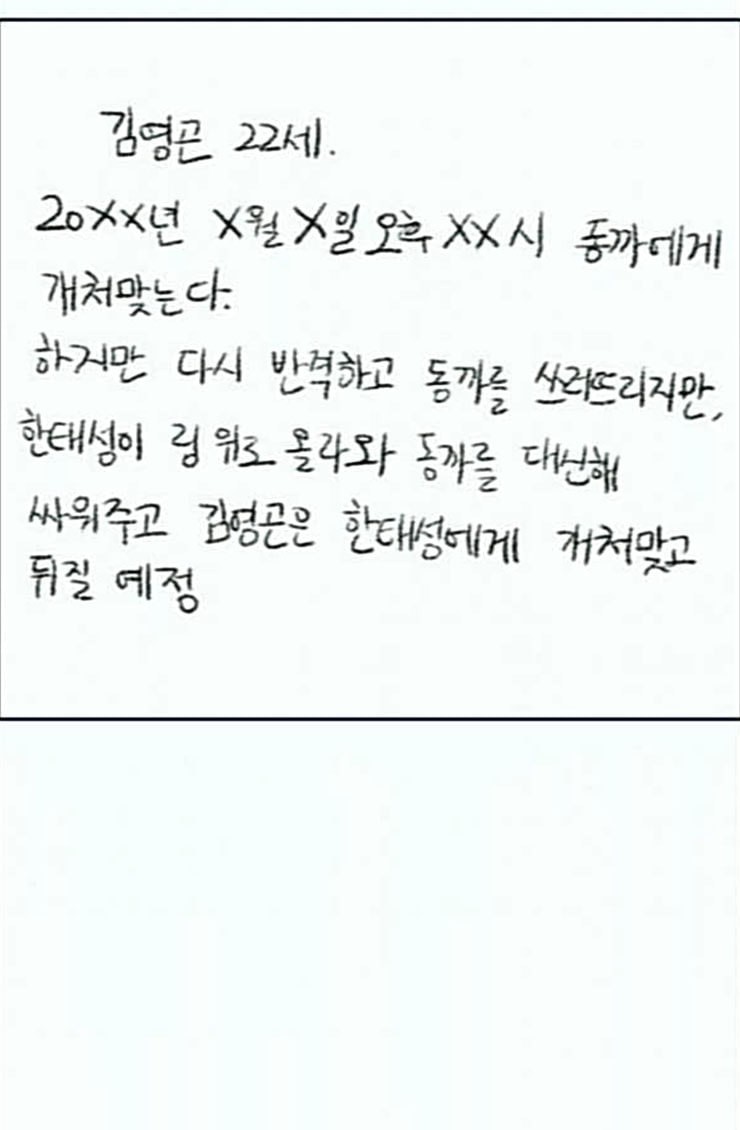 김영곤 22세.
20XX년 X월 X일 오후 XX시 동까에게
개처맞는다.
하지만 다시 반격하고 동까를 쓰러뜨리지만,
한태성이 링 위로 올라와 동까를 대신해
싸워주고 김영곤은 한태성에게 개처맞고
뒤질 예정